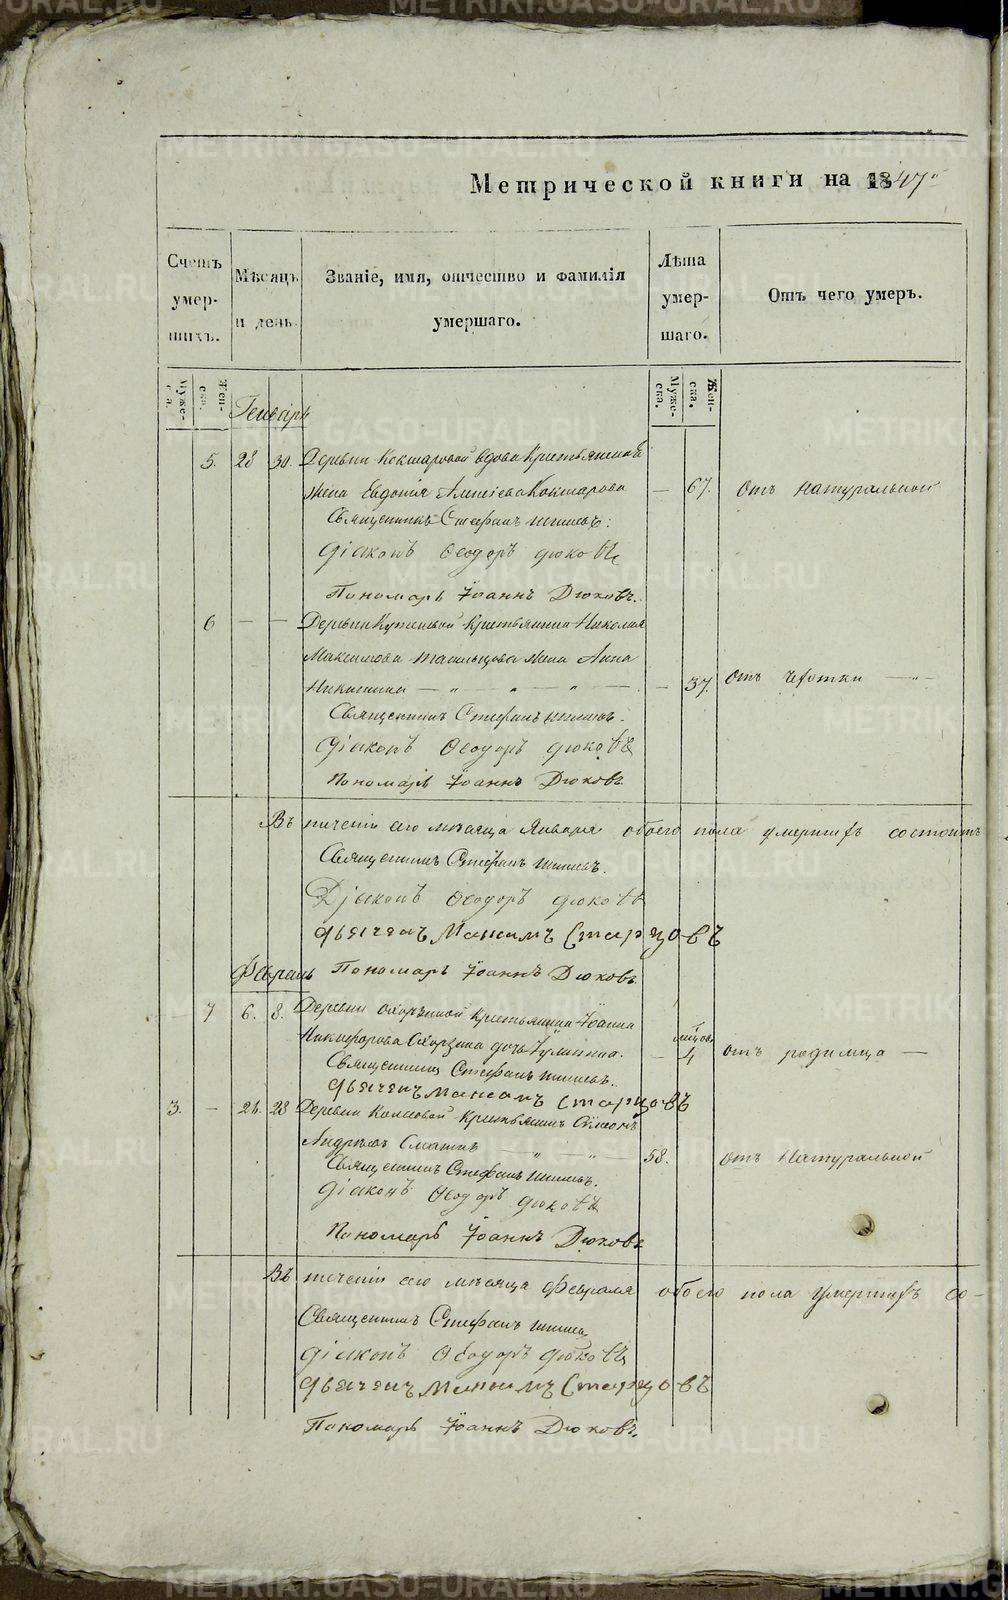 Метрической книги на 1847й
Счетъ умершихъ.
Мѣсяцъ и день.
Званіе, имя, отчество и фамилія умершаго.
Лѣта умершаго.
Отъ чего умеръ.
Мужеска.
Женска.
Мужеска.
Женска.
Генварь
5. 28 30. Деревни Кокшаровой вдова Крестьянская
жена Евдокія Алексіева Кокшарова — 67. отъ натуральной
Священникъ Стефанъ
Діаконъ Ѳеодоръ Дюковъ
Пономарь Іоаннъ Дюковъ.
6 — — Деревни крестьянина Николая
Максимова жена Анна
Никитина — „ — „ — „ — — 37. отъ чахотки — „ —
Священникъ Стефанъ
Діаконъ Ѳеодоръ Дюковъ
Пономарь Іоаннъ Дюковъ
Въ теченіи сего мѣсяца Января обоего пола умершихъ состоитъ
Священникъ Стефанъ
Діаконъ Ѳеодоръ Дюковъ
Дьячекъ Максимъ Старцовъ
Февраль Пономарь Іоаннъ Дюковъ
7 6. 8. Деревни крестьянина Іоанна
Никифорова дочь Іулианія. — 4 отъ родимца —
Священникъ Стефанъ
Дьячекъ Максимъ Старцовъ
3. — 26. 28 Деревни крестьянинъ Сѵмеонъ
Андреевъ — „ — 58. отъ натуральной
Священникъ Стефанъ
Діаконъ Ѳеодоръ Дюковъ
Пономарь Іоаннъ Дюковъ
Въ теченіи сего мѣсяца Февраля обоего пола умершихъ со-
Священникъ Стефанъ
Діаконъ Ѳеодоръ Дюковъ
Дьячекъ Максимъ Старцовъ
Пономарь Іоаннъ Дюковъ.
METRIKI.GASO-URAL.RU